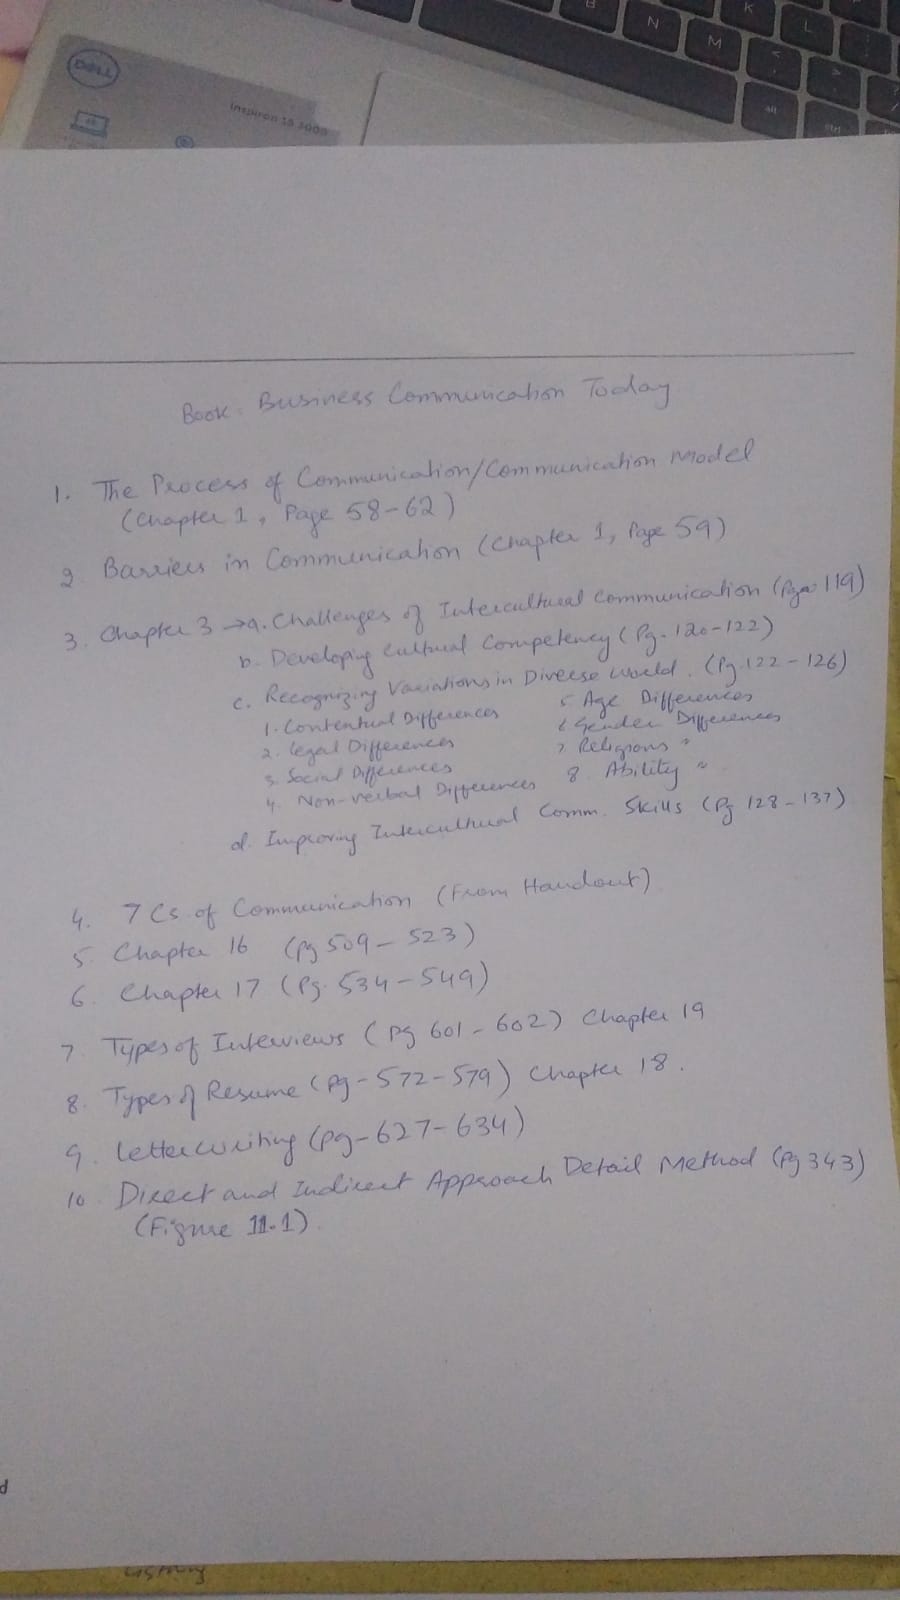 B N M K L
< >
alt ctrl
DELL
Inspiron 15 3000
Book: Business Communication Today
1. The Process of Communication/Communication Model
(Chapter 1, Page 58-62)
2 Barriers in Communication (Chapter 1, Page 59)
3. Chapter 3 →a. Challenges of Intercultural Communication (Page 119)
b. Developing Cultural Competency (Pg. 120-122)
c. Recognizing Variations in Diverse World. (Pg. 122-126)
1. Contextual Differences
2. Legal Differences
3. Social Differences
4. Non-verbal Differences
5 Age Differences
6 Gender Differences
7 Religions "
8. Ability "
d. Improving Intercultural Comm. Skills (Pg 128-137)
4. 7 Cs of Communication (From Handout)
5 Chapter 16 (pg 509-523)
6. Chapter 17 (Pg. 534-549)
7 Types of Interviews (pg 601-602) Chapter 19
8. Types of Resume (Pg-572-579) Chapter 18.
9. Letter writing (pg-627-634)
10 Direct and Indirect Approach Detail Method (Pg 343)
(Figure 11.1)
d